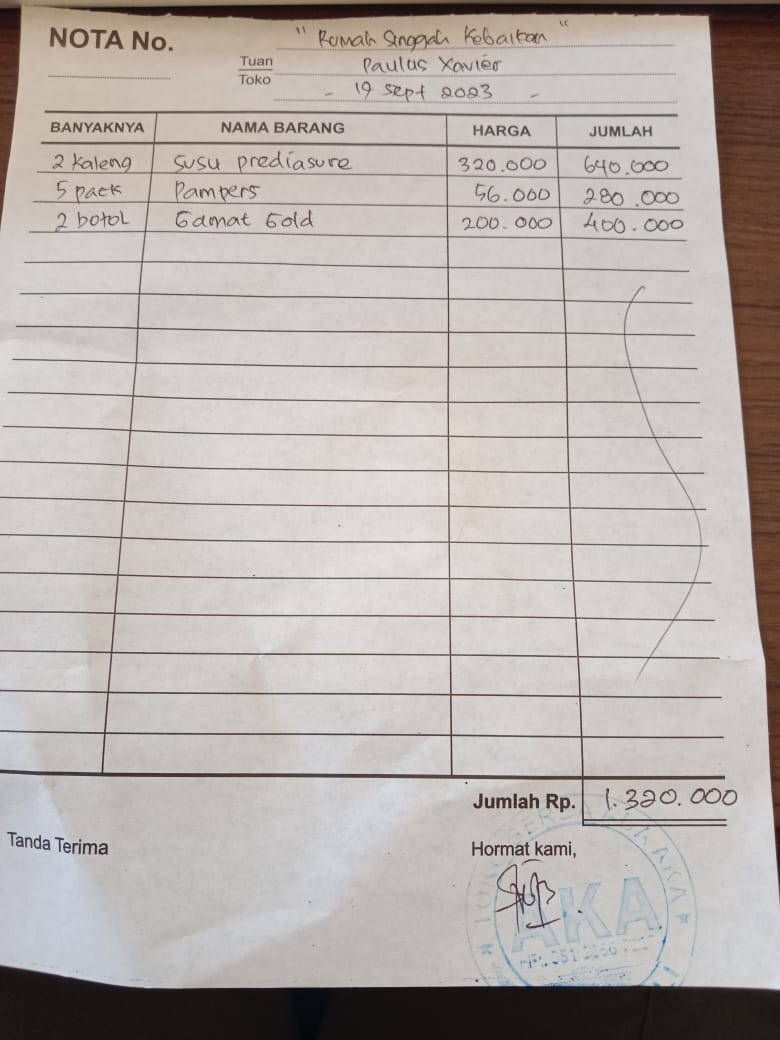 NOTA No.
" Rumah Singgah Kebaikan "
Tuan
Toko
Paulus Xavier
- 19 Sept 2023 -
BANYAKNYA NAMA BARANG HARGA JUMLAH
2 Kaleng Susu prediasure 320.000 640.000
5 pack Pampers 56.000 280.000
2 botol Gamat Gold 200.000 400.000
Jumlah Rp. 1.320.000
Tanda Terima
Hormat kami,
AKA